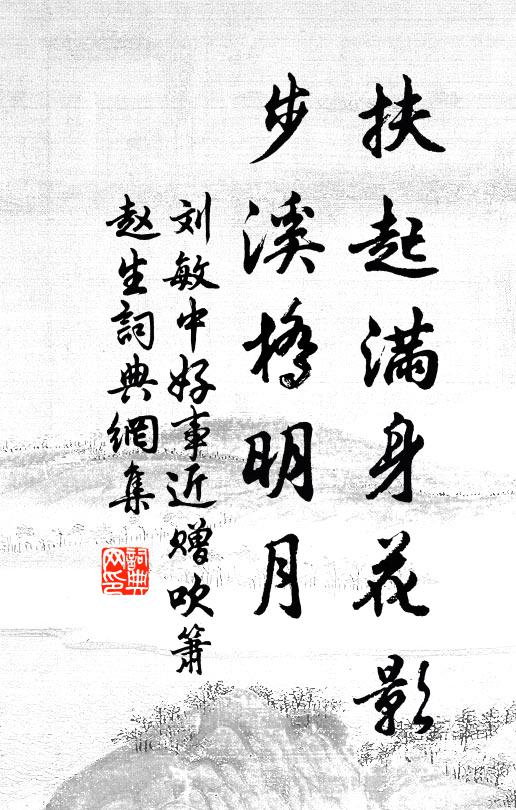 扶起满身花影
步溪桥明月
刘敏中好事近赠吹箫
赵生詞典網集
詞典
网印